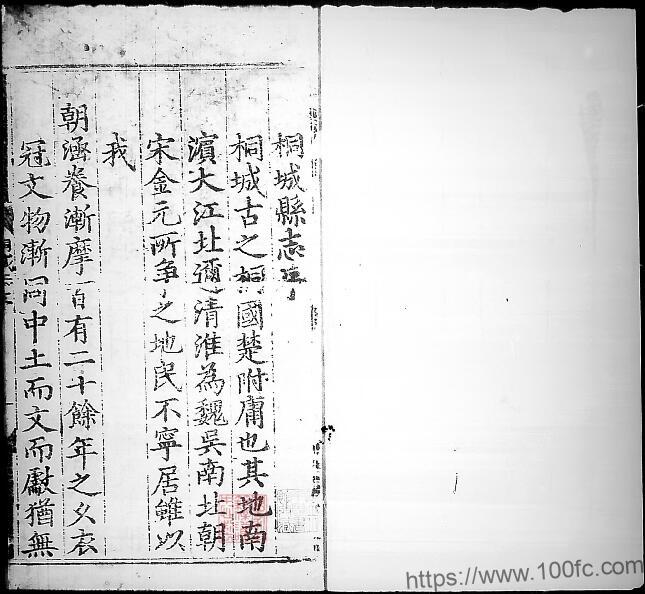 桐城縣志序
桐城古之桐國楚附庸也其地南
濱大江北邇清淮為魏吳南北朝
宋金元所爭之地民不寧居雖以
我
朝涵養漸摩百有二十餘年之久衣
冠文物漸同中土而文而獻猶無
https://www.100fc.com